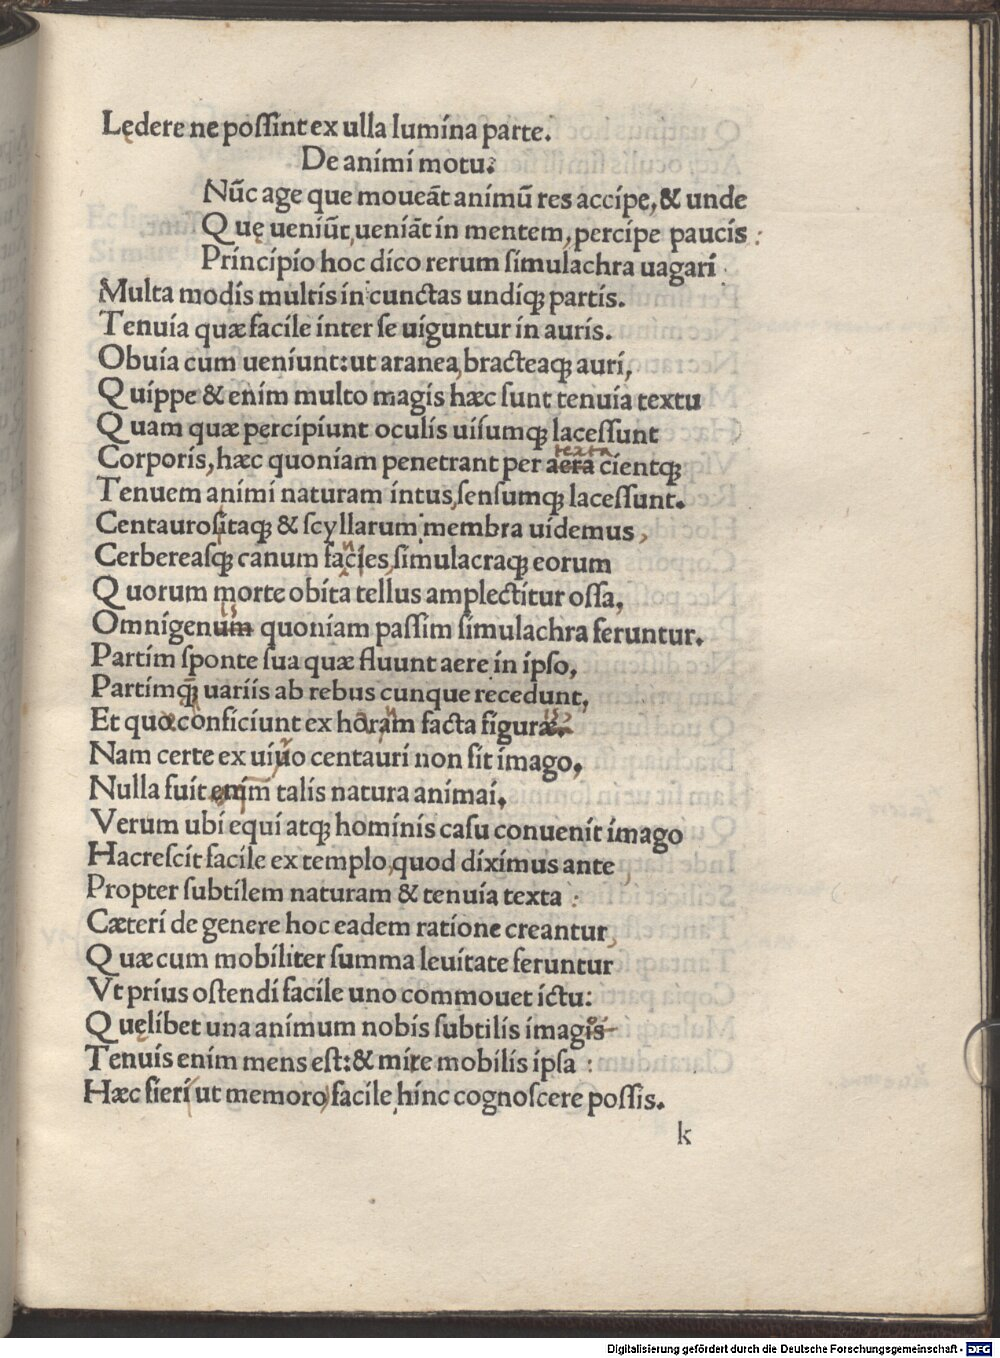 Lędere ne poſſint ex ulla lumina parte.
De animi motu.
Nūc age que moueāt animū res accipe, & unde
Quę ueniūt, ueniāt in mentem, percipe paucis:
Principio hoc dico rerum ſimulachra uagari
Multa modis multis in cunctas undiqꝫ partis.
Tenuia quæ facile inter ſe uiguntur in auris.
Obuia cum ueniunt: ut aranea, bracteaqꝫ auri,
Quippe & enim multo magis hæc ſunt tenuia textu
Quam quæ percipiunt oculis uiſumqꝫ laceſſunt
texta
Corporis, hæc quoniam penetrant per aera cientqꝫ
Tenuem animi naturam intus, ſenſumqꝫ laceſſunt.
Centauros itaqꝫ & ſcyllarum membra uidemus,
Cerbereaſqꝫ canum facies, ſimulacraqꝫ eorum
Quorum morte obita tellus amplectitur oſſa,
Omnigenum quoniam paſſim ſimulachra feruntur.
Partim ſponte ſua quæ fluunt aere in ipſo,
Partimqꝫ uariis ab rebus cunque recedunt,
Et quæ conficiunt ex horam facta figuræ.
Nam certe ex uiuo centauri non fit imago,
Nulla fuit enim talis natura animai.
Verum ubi equi atqꝫ hominis caſu conuenit imago
Hacreſcit facile ex templo, quod diximus ante,
Propter ſubtilem naturam & tenuia texta:
Cæteri de genere hoc eadem ratione creantur,
Quæ cum mobiliter ſumma leuitate feruntur
Vt prius oſtendi facile uno commouet ictu:
Quęlibet una animum nobis ſubtilis imagis
Tenuis enim mens eſt: & mire mobilis ipſa:
Hæc fieri ut memoro, facile hinc cognoſcere poſſis.
k
Digitalisierung gefördert durch die Deutsche Forschungsgemeinschaft - DFG